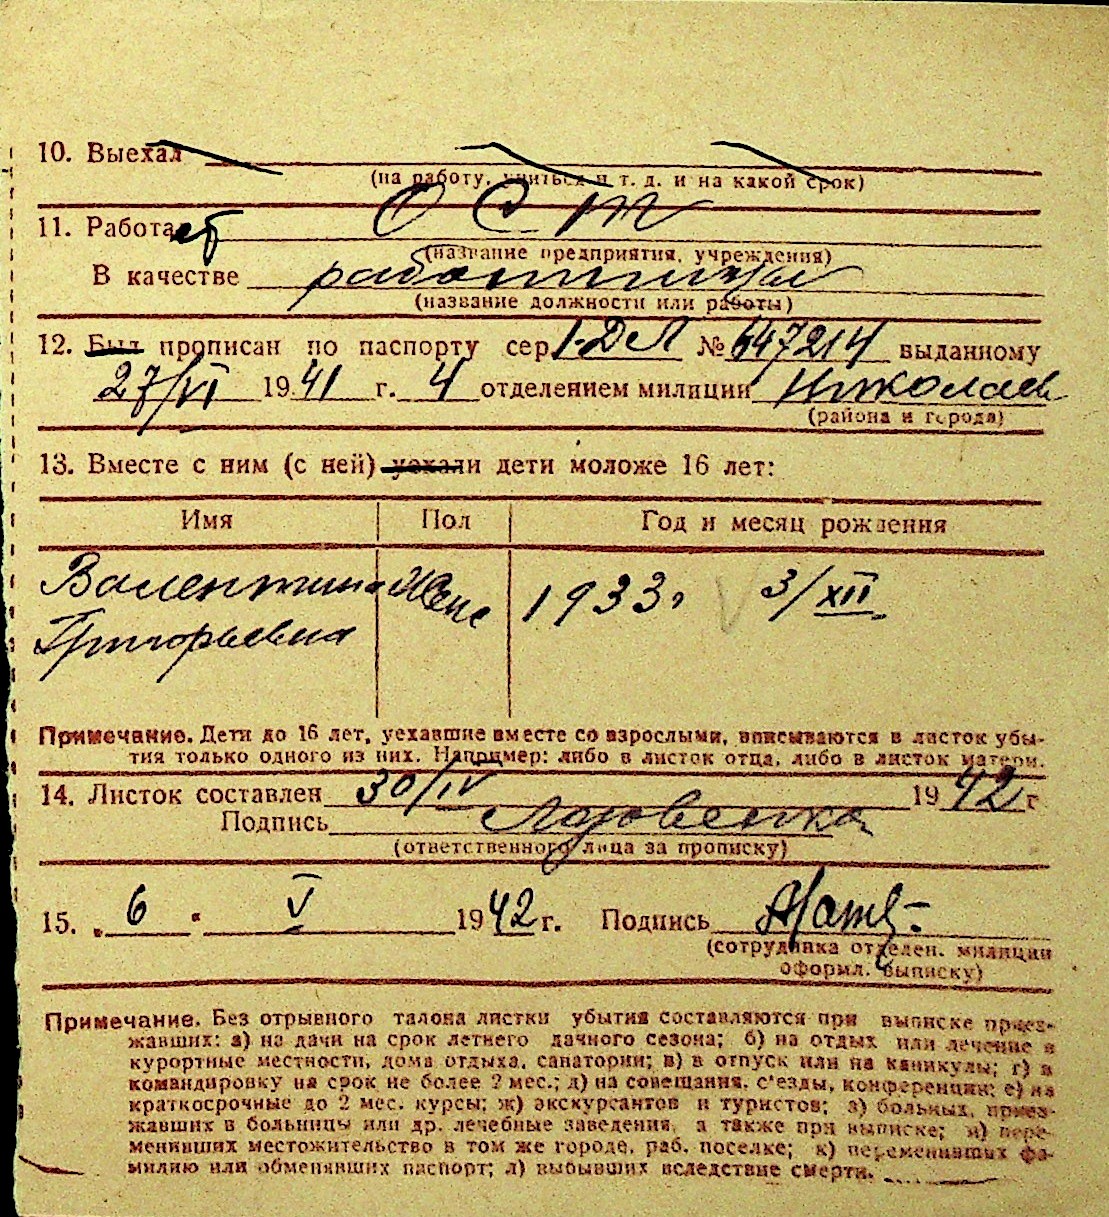 10. Выехал
(на работу, учиться и т. д. и на какой срок)
11. Работает ОСТ
(название предприятия, учреждения)
В качестве работница
(название должности или работы)
12. Был прописан по паспорту сер. 1-ДЛ № 647214 выданному
27/VI 1941 г. 4 отделением милиции Николаев
(района и города)
13. Вместе с ним (с ней) уехали дети моложе 16 лет:
Имя Пол Год и месяц рождения
Валентина Жене 1933г 3/XII
Григорьевна
Примечание. Дети до 16 лет, уехавшие вместе со взрослыми, вписываются в листок убы-
тия только одного из них. Например: либо в листок отца, либо в листок матери.
14. Листок составлен 30/IV 1942 г
Подпись Лозовенко
(ответственного лица за прописку)
15. „6 " V 1942 г. Подпись
(сотрудника отделен. милиции
оформл. выписку)
Примечание. Без отрывного талона листки убытия составляются при выписке приез-
жавших: а) на дачи на срок летнего дачного сезона; б) на отдых или лечение в
курортные местности, дома отдыха, санатории; в) в отпуск или на каникулы; г) в
командировку на срок не более 2 мес.; д) на совещания, с'езды, конференции; е) на
краткосрочные до 2 мес. курсы; ж) экскурсантов и туристов; з) больных, приез-
жавших в больницы или др. лечебные заведения, а также при выписке; и) пере-
менивших местожительство в том же городе, раб. поселке; к) переменивших фа-
милию или обменявших паспорт; л) выбывших вследствие смерти.